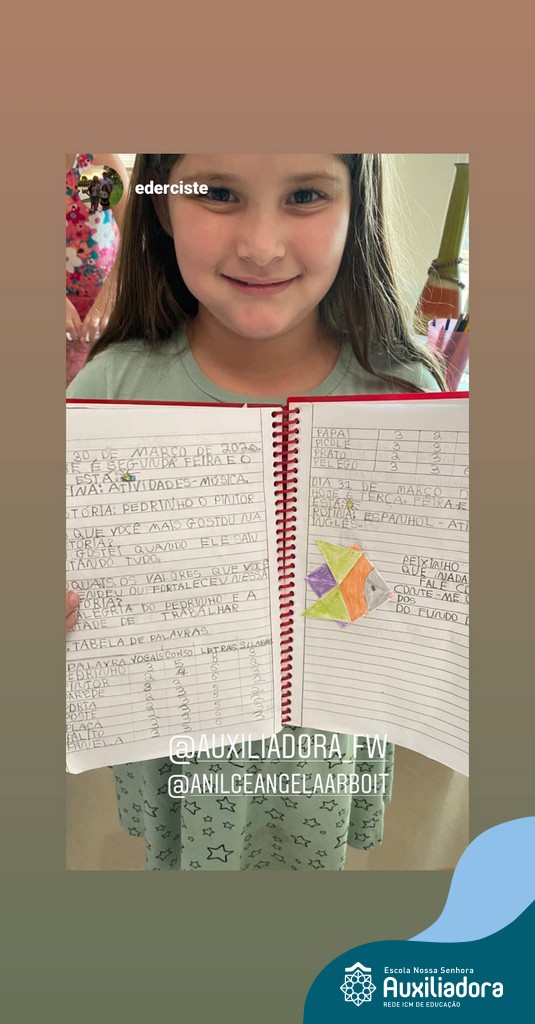 ederciste
30 DE MARÇO DE 2020.
E É SEGUNDA FEIRA E O
ESTÁ
TINA: ATIVIDADES-MÚSICA.
TÓRIA: PEDRINHO O PINTOR
QUE VOCÊ MAIS GOSTOU NA
TÓRIA?
GOSTEI QUANDO ELE SAIU
TANDO TUDO.
QUAIS OS VALORES QUE VOCÊ
ENDEU OU FORTALECEU NESSA
TÓRIA?
ALEGRIA DO PEDRINHO E A
TADE DE TRABALHAR
TABELA DE PALAVRAS
PALAVRA VOGAIS CONSO LETRAS SÍLABAS
PEDRINHO
INTOR
AREDE
ÓRIA
POSTE
PLACA
PALITO
PANELA
PAPAI 3 2
PICOLÉ 3 3
PRATO 2 3
PELEGO 3 3
DIA 31 DE MARÇO D
HOJE É TERÇA FEIRA E
ESTÁ
ROTINA: ESPANHOL - ATI
INGLÊS-
PEIXINHO
QUE NADA
FALE C
CONTE-ME
DOS
DO FUNDO D
@AUXILIADORA_FW
@ANILCEANGELAARBOIT
Escola Nossa Senhora
Auxiliadora
REDE ICM DE EDUCAÇÃO